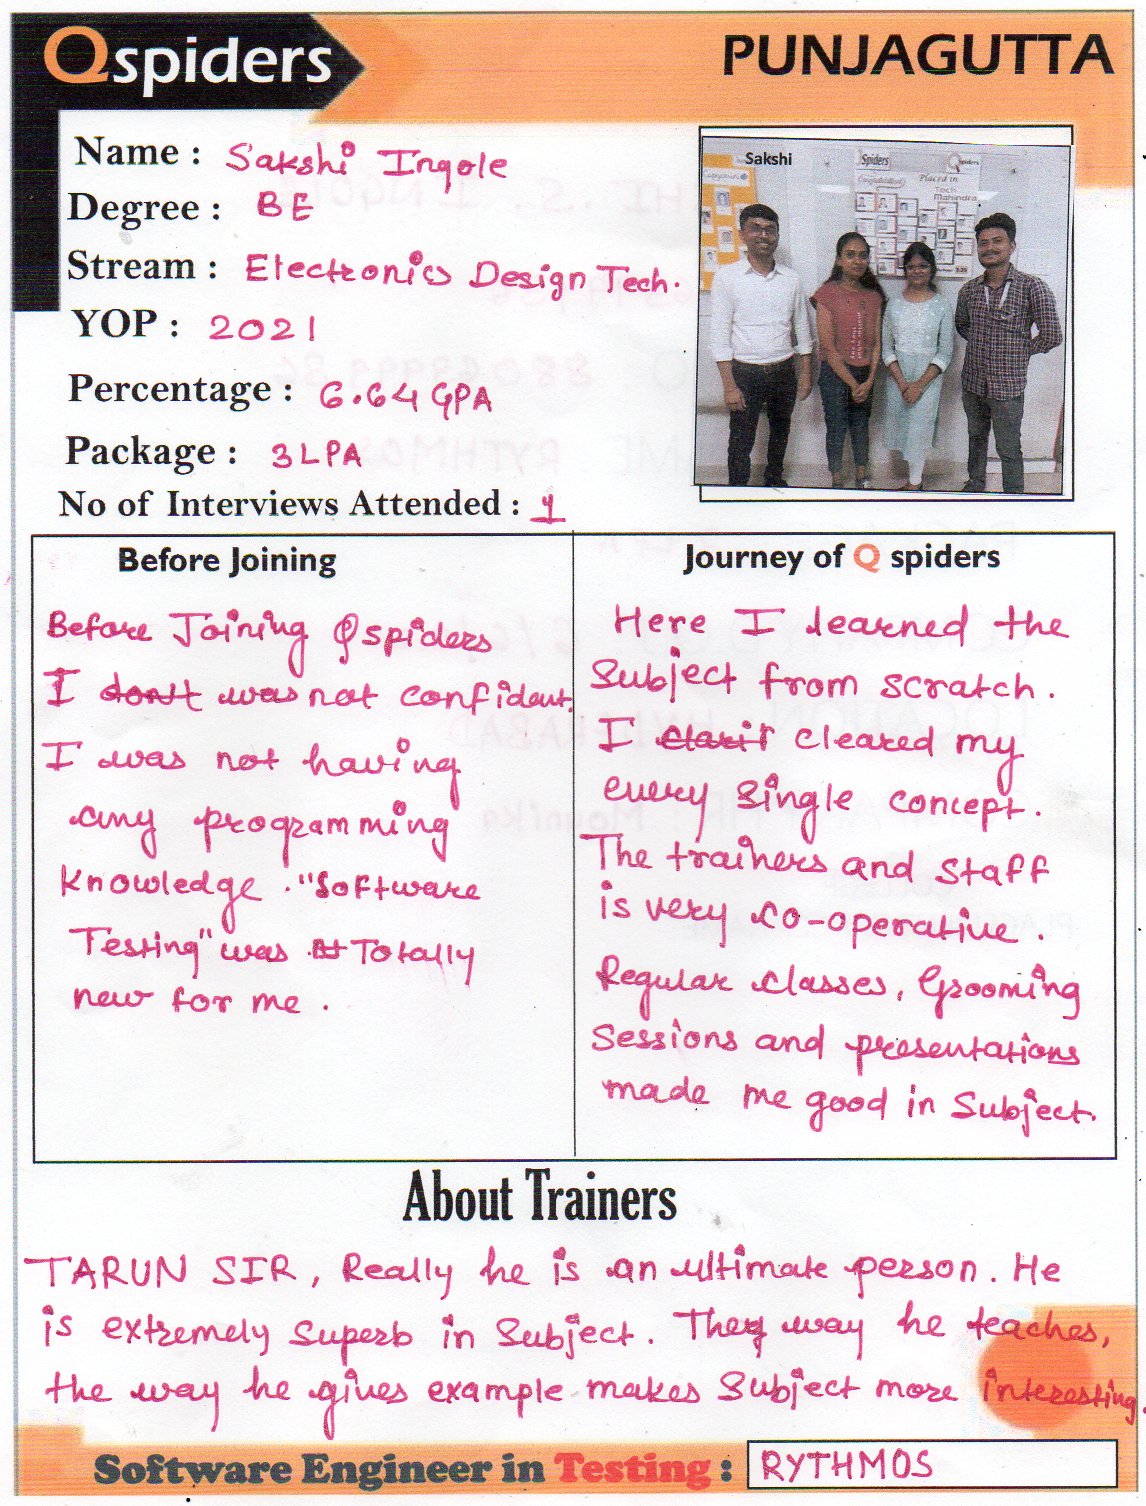 Qspiders
PUNJAGUTTA
Name : Sakshi Ingole
Degree : BE
Stream : Electronics Design Tech.
YOP : 2021
Percentage : 6.64 GPA
Package : 3LPA
No of Interviews Attended : 1
Sakshi
Spiders
Qspiders
Capgemini
Placed in
Tech
Mahindra
Before Joining
Before Joining Qspiders
I don't was not confident.
I was not having
any programming
knowledge. "Software
Testing" was Totally
new for me.
Journey of Q spiders
Here I learned the
Subject from scratch.
I cleared my
every single concept.
The trainers and staff
is very co-operative.
Regular classes, Grooming
Sessions and presentations
made me good in Subject.
About Trainers
TARUN SIR, Really he is an ultimate person. He
is extremely superb in Subject. They way he teaches,
the way he gives example makes Subject more interesting.
Software Engineer in Testing : RYTHMOS